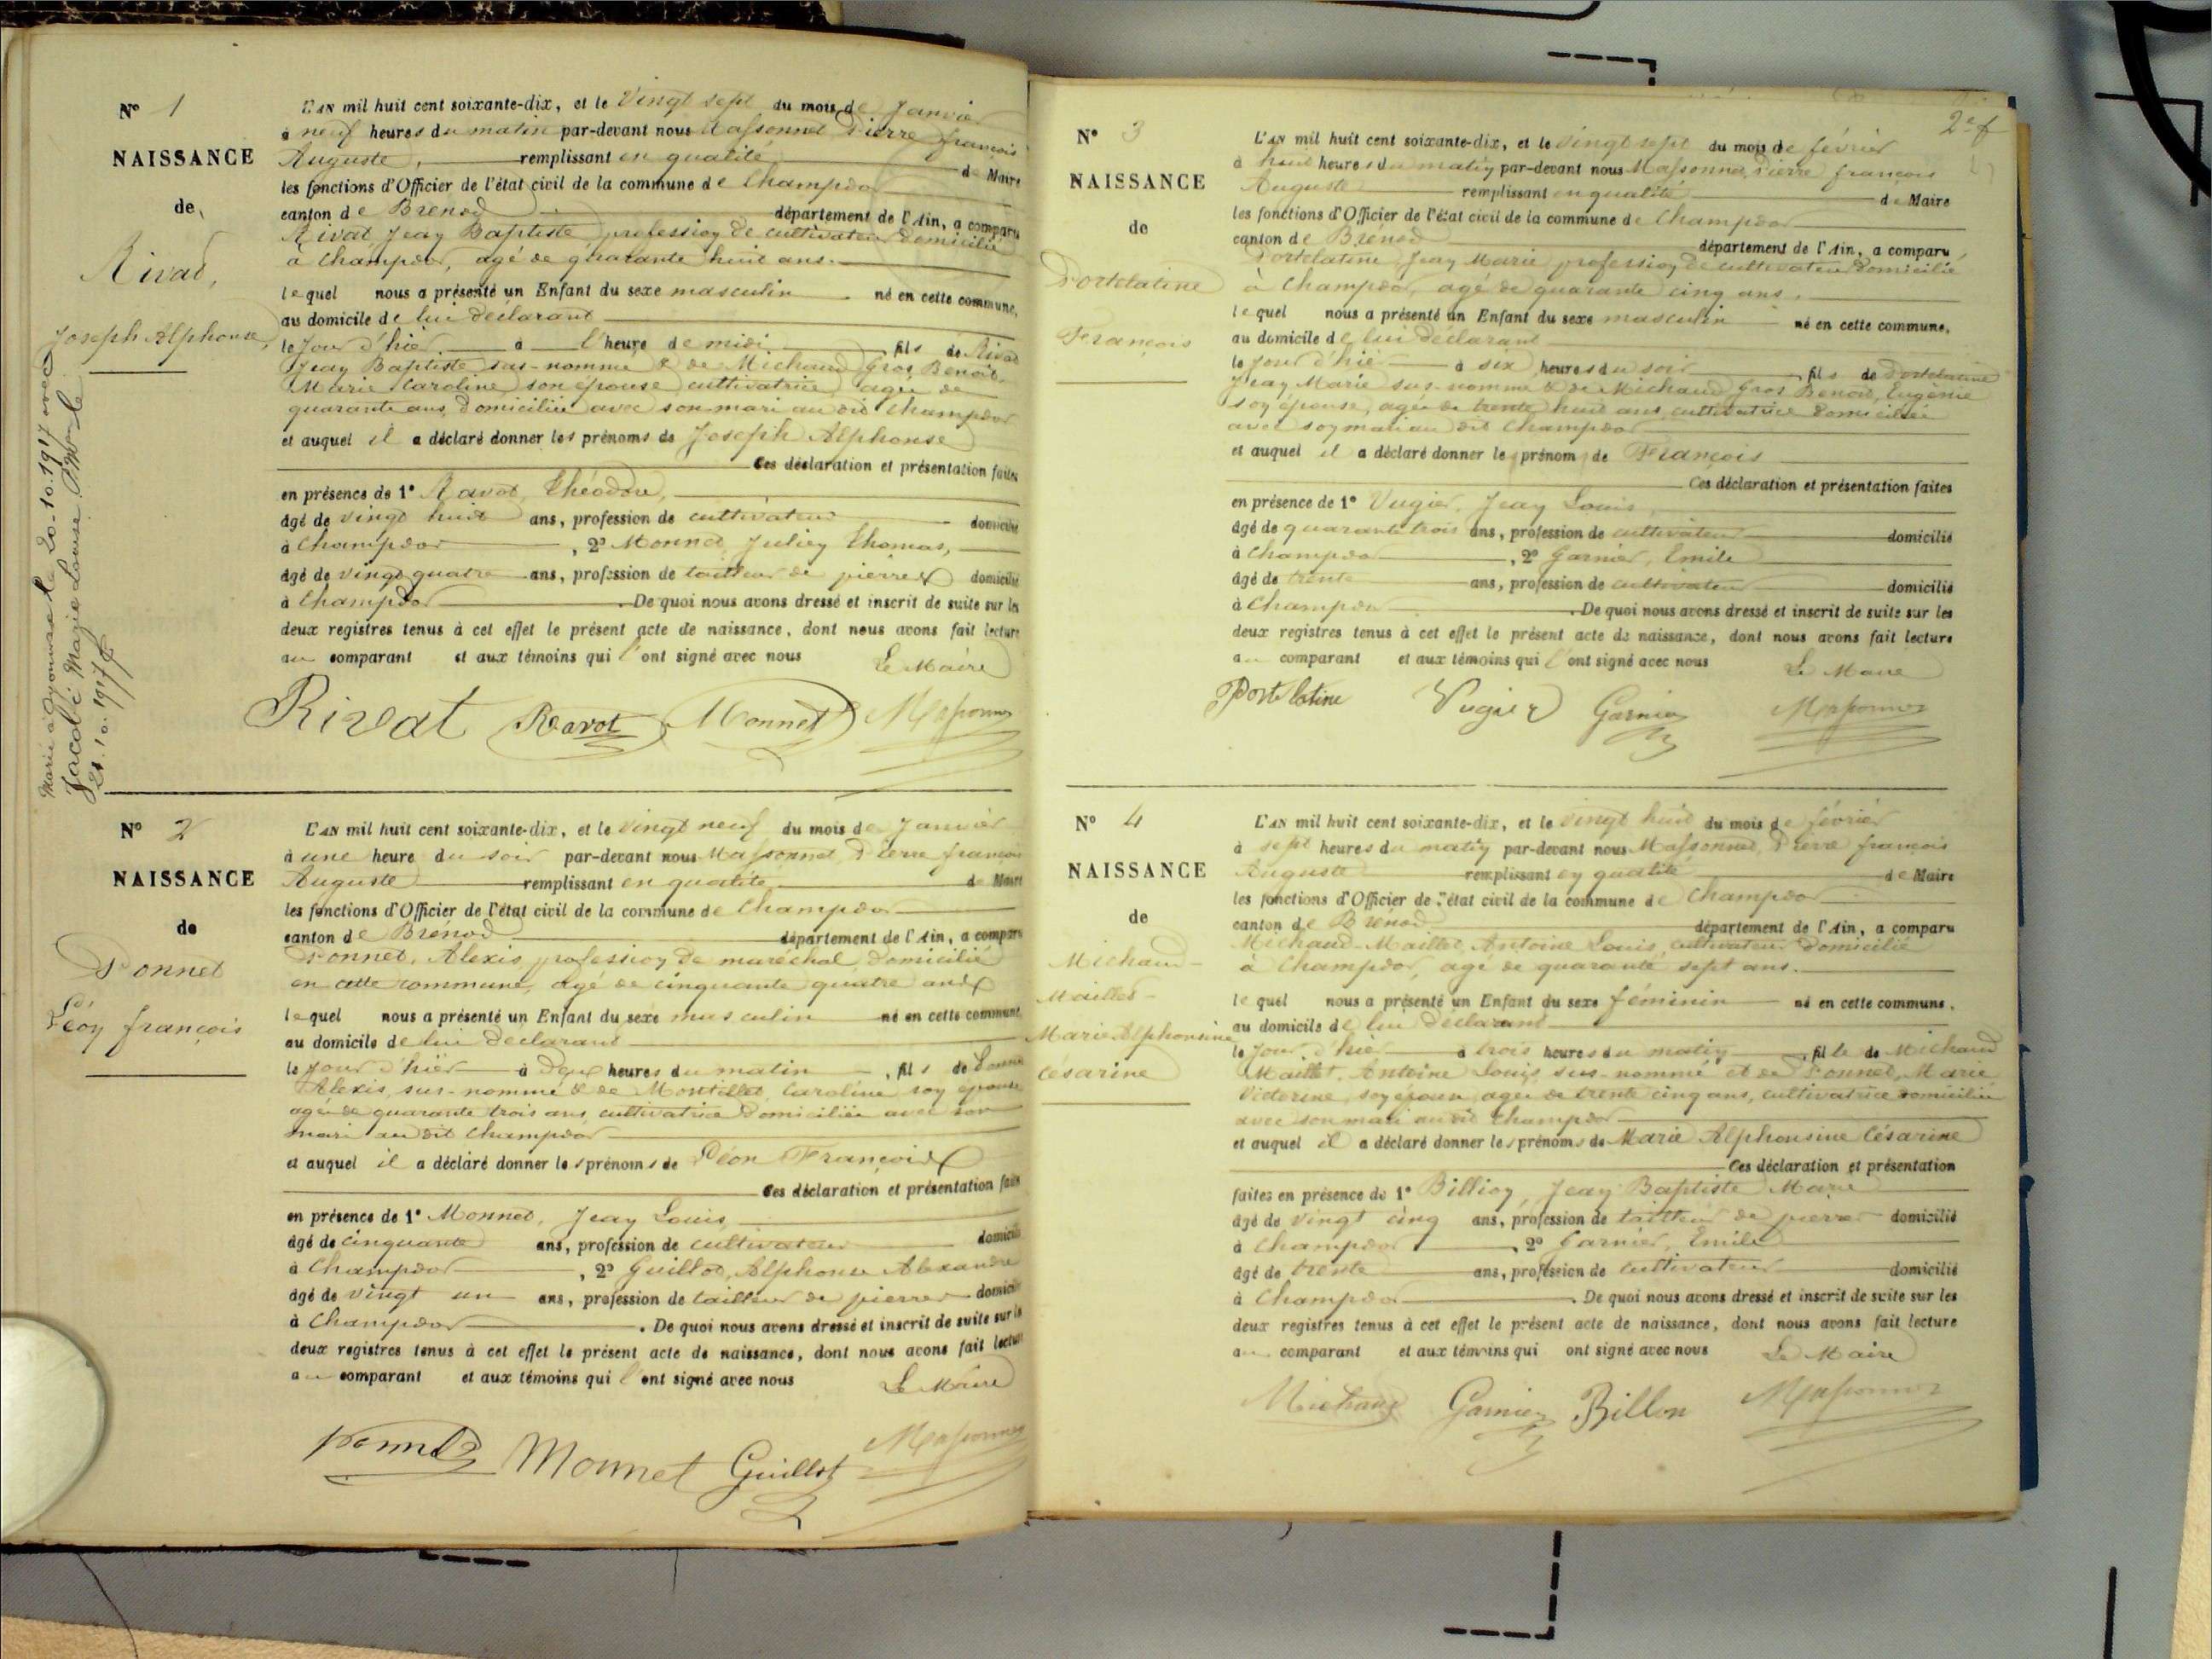 N° 1
NAISSANCE
de
Rivat,
Joseph Alphonse,
Marié à Oyonnax le 20-10-1917 avec
Jacobé Marie Louise
21.10.1917
L'AN mil huit cent soixante-dix, et le Vingt sept du mois de Janvier
à neuf heures du matin par-devant nous Massonnet Pierre françois
Auguste, remplissant en qualité de Maire
les fonctions d'Officier de l'état civil de la commune de Champdor
canton de Brenod département de l'Ain, a comparu
Rivat, Jean Baptiste profession de cultivateur domicilié
à Champdor, agé de quarante huit ans.
lequel nous a présenté un Enfant du sexe masculin né en cette commune,
au domicile de lui déclarant
le jour d'hier à l'heure de midi, fils de Rivat
Jean Baptiste sus-nommé & de Michaud Gros Benoit,
Marie Caroline son épouse cultivatrice agée de
quarante ans, domiciliée avec son mari au dit Champdor
et auquel il a déclaré donner les prénoms de Joseph Alphonse
Ces déclaration et présentation faites
en présence de 1° Ravot, Théodore,
âgé de vingt huit ans, profession de cultivateur domicilié
à Champdor, 2° Monnet, Julien Thomas,
âgé de vingt quatre ans, profession de tailleur de pierres domicilié
à Champdor. De quoi nous avons dressé et inscrit de suite sur les
deux registres tenus à cet effet le présent acte de naissance, dont nous avons fait lecture
au comparant et aux témoins qui l'ont signé avec nous
Le Maire
Rivat Ravot Monnet Massonnet
N° 2
NAISSANCE
de
Ponnet
Léon françois
L'AN mil huit cent soixante-dix, et le vingt neuf du mois de Janvier
à une heure du soir par-devant nous Massonnet, Pierre françois
Auguste remplissant en qualité de Maire
les fonctions d'Officier de l'état civil de la commune de Champdor
canton de Brénod département de l'Ain, a comparu
Ponnet, Alexis, profession de maréchal domicilié
en cette commune, agé de cinquante quatre ans
lequel nous a présenté un Enfant du sexe masculin né en cette commune,
au domicile de lui déclarant
le jour d'hier à deux heures du matin, fils de Ponnet
Alexis, sus-nommé & de Montillet, Caroline son épouse
agée de quarante trois ans cultivatrice domiciliée avec son
mari au dit Champdor
et auquel il a déclaré donner les prénoms de Léon François
Ces déclaration et présentation faites
en présence de 1° Monnet, Jean Louis,
âgé de cinquante ans, profession de cultivateur domicilié
à Champdor, 2° Guillot, Alphonse Alexandre
âgé de vingt un ans, profession de tailleur de pierres domicilié
à Champdor. De quoi nous avons dressé et inscrit de suite sur les
deux registres tenus à cet effet le présent acte de naissance, dont nous avons fait lecture
au comparant et aux témoins qui l'ont signé avec nous
Le Maire
Ponnet Monnet Guillot Massonnet
2e f
N° 3
NAISSANCE
de
Portelatine
François
L'AN mil huit cent soixante-dix, et le vingt sept du mois de février
à huit heures du matin par-devant nous Massonnet, Pierre françois
Auguste remplissant en qualité de Maire
les fonctions d'Officier de l'état civil de la commune de Champdor
canton de Brénod département de l'Ain, a comparu
Portelatine, Jean Marie profession de cultivateur domicilié
à Champdor, agé de quarante cinq ans,
lequel nous a présenté un Enfant du sexe masculin né en cette commune,
au domicile de lui déclarant
le jour d'hier à six heures du soir, fils de Portelatine
Jean Marie sus-nommé & de Michaud Gros Benoit, Eugénie
son épouse, agée de trente huit ans, cultivatrice domiciliée
avec son mari au dit Champdor
et auquel il a déclaré donner le prénom de François
Ces déclaration et présentation faites
en présence de 1° Vugier, Jean Louis,
âgé de quarante trois ans, profession de cultivateur domicilié
à Champdor, 2° Garnier, Emile
âgé de trente ans, profession de cultivateur domicilié
à Champdor. De quoi nous avons dressé et inscrit de suite sur les
deux registres tenus à cet effet le présent acte de naissance, dont nous avons fait lecture
au comparant et aux témoins qui l'ont signé avec nous
Le Maire
Portelatine Vugier Garnier Massonnet
N° 4
NAISSANCE
de
Michaud-
Maillet-
Marie Alphonsine
Césarine
L'AN mil huit cent soixante-dix, et le vingt huit du mois de février
à sept heures du matin par-devant nous Massonnet, Pierre françois
Auguste remplissant en qualité de Maire
les fonctions d'Officier de l'état civil de la commune de Champdor
canton de Brénod département de l'Ain, a comparu
Michaud-Maillet, Antoine Louis, cultivateur domicilié
à Champdor, agé de quarante sept ans.
lequel nous a présenté un Enfant du sexe féminin né en cette commune,
au domicile de lui déclarant
le jour d'hier à trois heures du matin, fille de Michaud
Maillet, Antoine Louis sus-nommé et de Ponnet, Marie
Victorine, son épouse, agée de trente cinq ans, cultivatrice domiciliée
avec son mari au dit Champdor
et auquel il a déclaré donner les prénoms de Marie Alphonsine Césarine
Ces déclaration et présentation
faites en présence de 1° Billion, Jean Baptiste Marie
âgé de vingt cinq ans, profession de tailleur de pierres domicilié
à Champdor, 2° Garnier, Emile
âgé de trente ans, profession de cultivateur domicilié
à Champdor. De quoi nous avons dressé et inscrit de suite sur les
deux registres tenus à cet effet le présent acte de naissance, dont nous avons fait lecture
au comparant et aux témoins qui ont signé avec nous
Le Maire
Michaud Garnier Billon Massonnet